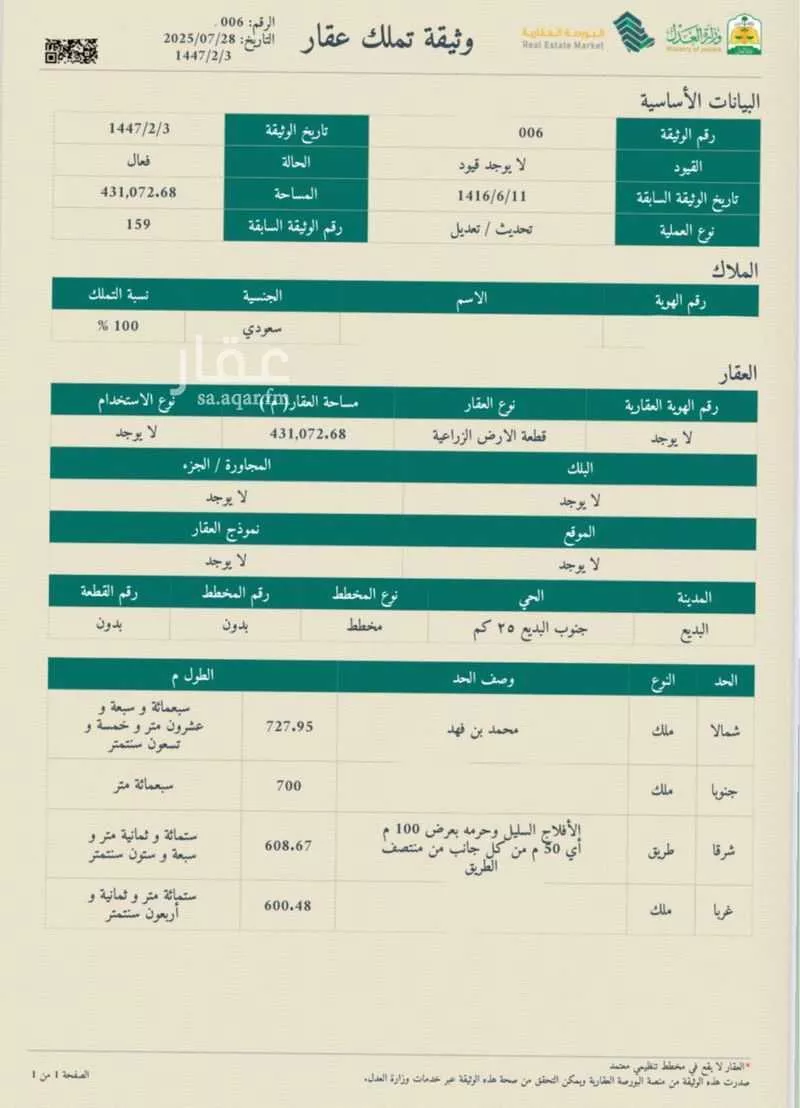 وزارة العدل
Ministry of Justice
البورصة العقارية
Real Estate Market
وثيقة تملك عقار
الرقم: 006
التاريخ: 2025/07/28
1447/2/3
البيانات الأساسية
رقم الوثيقة 006 تاريخ الوثيقة 1447/2/3
القيود لا يوجد قيود الحالة فعال
تاريخ الوثيقة السابقة 1416/6/11 المساحة 431,072.68
نوع العملية تحديث / تعديل رقم الوثيقة السابقة 159
الملاك
رقم الهوية الاسم الجنسية نسبة التملك
سعودي 100 %
عقار
sa.aqar.fm
العقار
رقم الهوية العقارية نوع العقار مساحة العقار(م٢) نوع الاستخدام
لا يوجد قطعة الارض الزراعية 431,072.68 لا يوجد
البلك المجاورة / الجزء
لا يوجد لا يوجد
الموقع نموذج العقار
لا يوجد لا يوجد
المدينة الحي نوع المخطط رقم المخطط رقم القطعة
البديع جنوب البديع ٢٥ كم مخطط بدون بدون
الحد النوع وصف الحد الطول م
شمالا ملك محمد بن فهد 727.95 سبعمائة و سبعة و
عشرون متر و خمسة و
تسعون سنتمتر
جنوبا ملك 700 سبعمائة متر
شرقا طريق الأفلاج السليل وحرمه بعرض 100 م
أي 50 م من كل جانب من منتصف
الطريق
608.67 ستمائة و ثمانية متر و
سبعة و ستون سنتمتر
غربا ملك 600.48 ستمائة متر و ثمانية و
أربعون سنتمتر
*العقار لا يقع في مخطط تنظيمي معتمد
صدرت هذه الوثيقة من منصة البورصة العقارية ويمكن التحقق من صحة هذه الوثيقة عبر خدمات وزارة العدل.
الصفحة 1 من 1